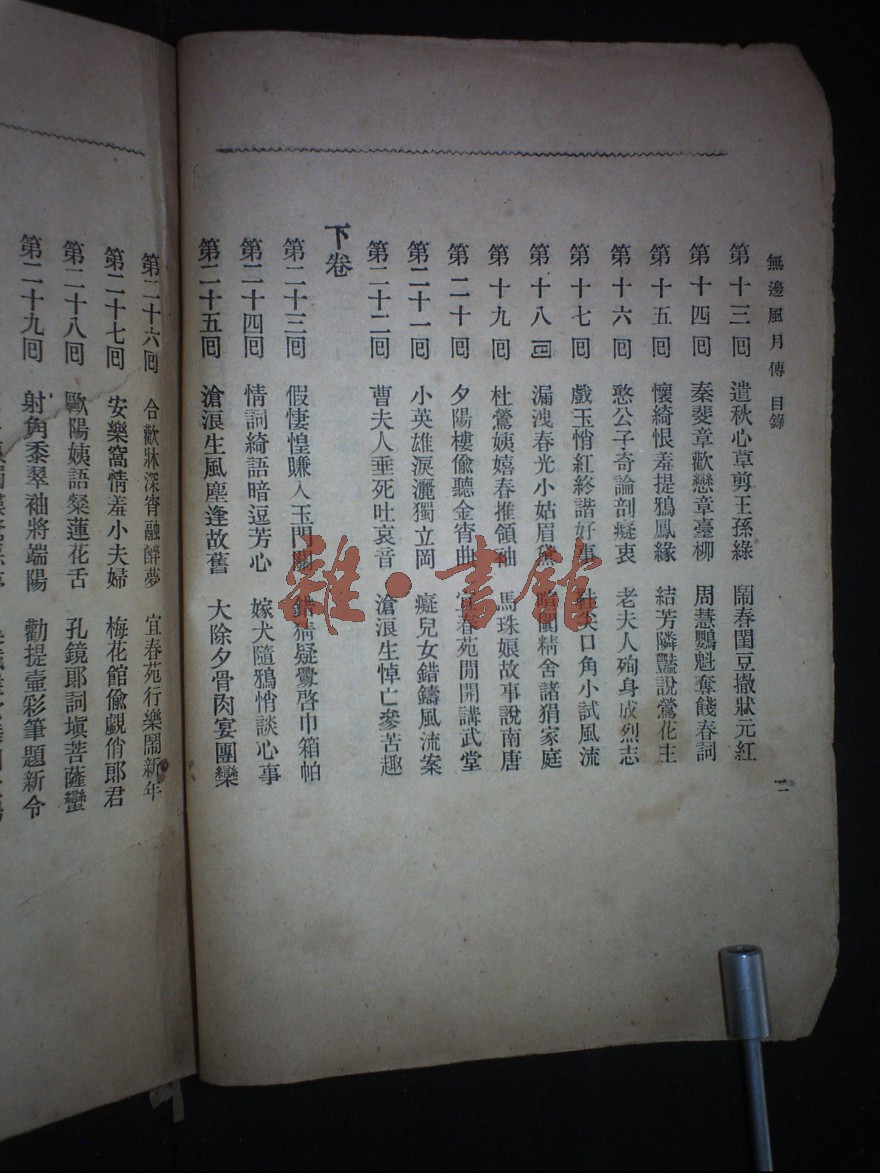 無邊風月傳 目錄 二
第十三回 遣秋心草剪王孫綠 鬧春閨豆撒狀元紅
第十四回 秦斐章歡戀章臺柳 周慧鸚魁奪餞春詞
第十五回 懷綺恨羞提鴉鳳緣 結芳隣豔說鶯花主
第十六回 憨公子奇論剖癡衷 老夫人殉身成烈志
第十七回 戲玉悄紅終諧好事 口角小試風流
第十八回 漏洩春光小姑眉黛 精舍諸狷家庭
第十九回 杜鶯姨嬉春推領袖 馬珠娘故事說南唐
第二十回 夕陽樓偸聽金宵曲 宜春苑閒開講武堂
第二十一回 小英雄淚灑獨立岡 癡兒女錯鑄風流案
第二十二回 曹夫人垂死吐哀音 滄浪生悼亡參苦趣
下卷
第二十三回 假悽惶賺入玉門關 錯猜疑驚啓巾箱帕
第二十四回 情詞綺語暗逗芳心 嫁犬隨鴉悄談心事
第二十五回 滄浪生風塵逢故舊 大除夕骨肉宴團欒
第二十六回 合歡牀深宵融醉夢 宜春苑行樂鬧新年
第二十七回 安樂窩情羞小夫婦 梅花館偸覷俏郎君
第二十八回 歐陽姨語粲蓮花舌 孔鏡郎詞塡菩薩蠻
第二十九回 射角黍翠袖將端陽 勸提壺彩筆題新令
雜·書館